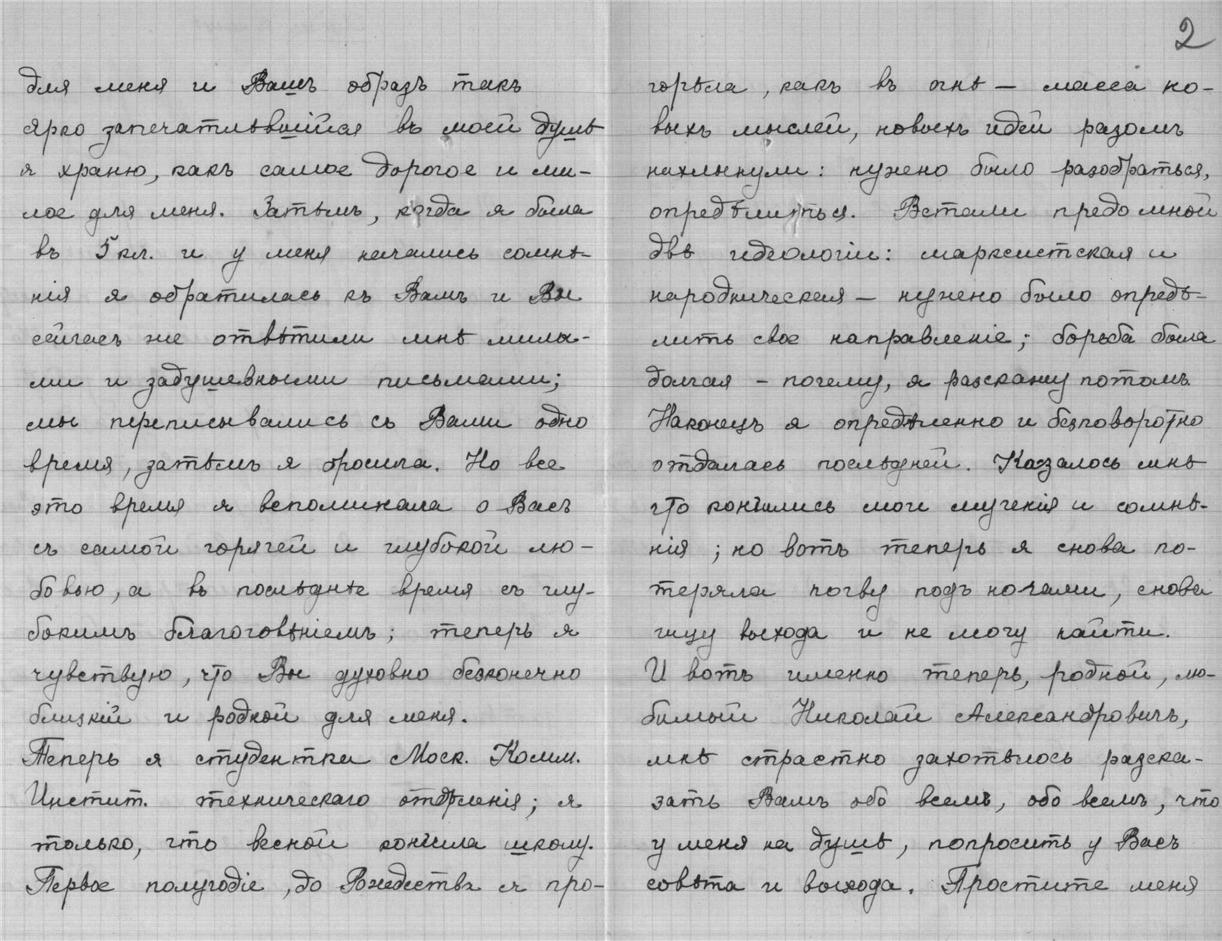 для меня и Вашъ образъ такъ
ярко запечатлѣвшійся въ моей душѣ
я храню, какъ самое дорогое и ми-
лое для меня. Затѣмъ, когда я была
въ 5 кл. и у меня начались сомнѣ-
нія я обратилась къ Вамъ и Вы
сейчасъ же отвѣтили мнѣ милы-
ми и задушевными письмами;
мы переписывались съ Вами одно
время, затѣмъ я бросила. Но все
это время я вспоминала о Васъ
съ самой горячей и глубокой лю-
бовью, а въ послѣднѣе время съ глу-
бокимъ благоговѣніемъ; теперь я
чувствую, что Вы духовно безконечно
близкій и родной для меня.
Теперь я студентка Моск. Комм.
Инстит. техническаго отдѣленія; я
только, что весной кончила школу.
Первое полугодіе, до Рождества я про-
2
горѣла, какъ въ огнѣ — масса но-
выхъ мыслей, новыхъ идей разомъ
нахлынули: нужно было разобраться,
опредѣлиться. Встали предо мной
двѣ идеологіи: марксистская и
народническая — нужно было опредѣ-
лить свое направленіе; борьба была
долгая - почему, я разскажу потомъ
Наконецъ я опредѣленно и безповоротно
отдалась послѣдней. Казалось мнѣ
что кончились мои мученія и сомнѣ-
нія; но вотъ теперь я снова по-
теряла почву подъ ногами, снова
ищу выхода и не могу найти.
И вотъ именно теперь, родной, лю-
бимый Николай Александровичъ,
мнѣ страстно захотѣлось разска-
зать Вамъ обо всемъ, обо всемъ, что
у меня на душѣ, попросить у Васъ
совѣта и выхода. Простите меня